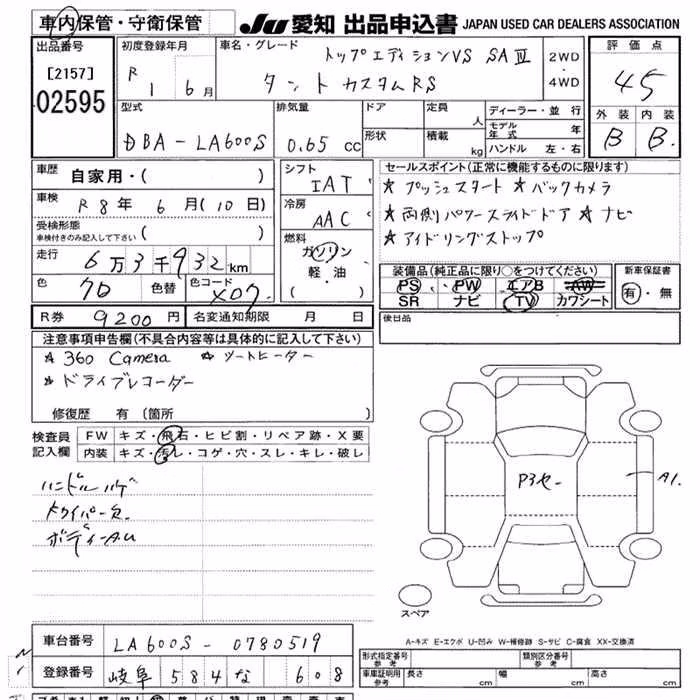 車内保管・守衛保管
JU 愛知 出品申込書 JAPAN USED CAR DEALERS ASSOCIATION
出品番号
[2157]
02595
初度登録年月
R 1 6月
車名・グレード
トップエディションVS SAⅢ
タント カスタムRS
2WD
・
4WD
評価点
45
外装 内装
B B.
型式
DBA-LA600S
排気量
0.65 cc
ドア
定員 人
形状
積載 kg
ディーラー・並行
モデル年式 年
ハンドル 左・右
車歴
自家用・( )
車検
R 8年 6月(10日)
受検形態
車検付きのみ記入して下さい ( )
走行
6万3千932km
色
7D
色替
色コード
X07
シフト
IAT
冷房
AAC
燃料
ガソリン
軽・油
( )
セールスポイント(正常に機能するものに限ります)
★ プッシュスタート ★ バックカメラ
★ 両側パワースライドドア ★ ナビ
★ アイドリングストップ
装備品(純正品に限り○をつけてください)
PS PW エアB AW
SR ナビ TV カワシート
新車保証書
有・無
R券 9200円
名変通知期限 月 日
後日品
注意事項申告欄(不具合内容等は具体的に記入して下さい)
★ 360 Camera ★ シートヒーター
★ ドライブレコーダー
修復歴 有(箇所 )
検査員
記入欄
FW キズ・飛石・ヒビ割・リペア跡・X要
内装 キズ・汚レ・コゲ・穴・スレ・キレ・破レ
ハンドルハゲ
ボディーAU
P3セー
A1.
スペア
A-キズ E-エクボ U-凹み W-補修跡 S-サビ C-腐食 XX-交換済
車台番号
LA600S-0780519
登録番号
岐阜 584 な 608
形式指定番号
参考
類別区分番号
参考
車庫証明用
参考
長さ cm
幅 cm
高さ cm